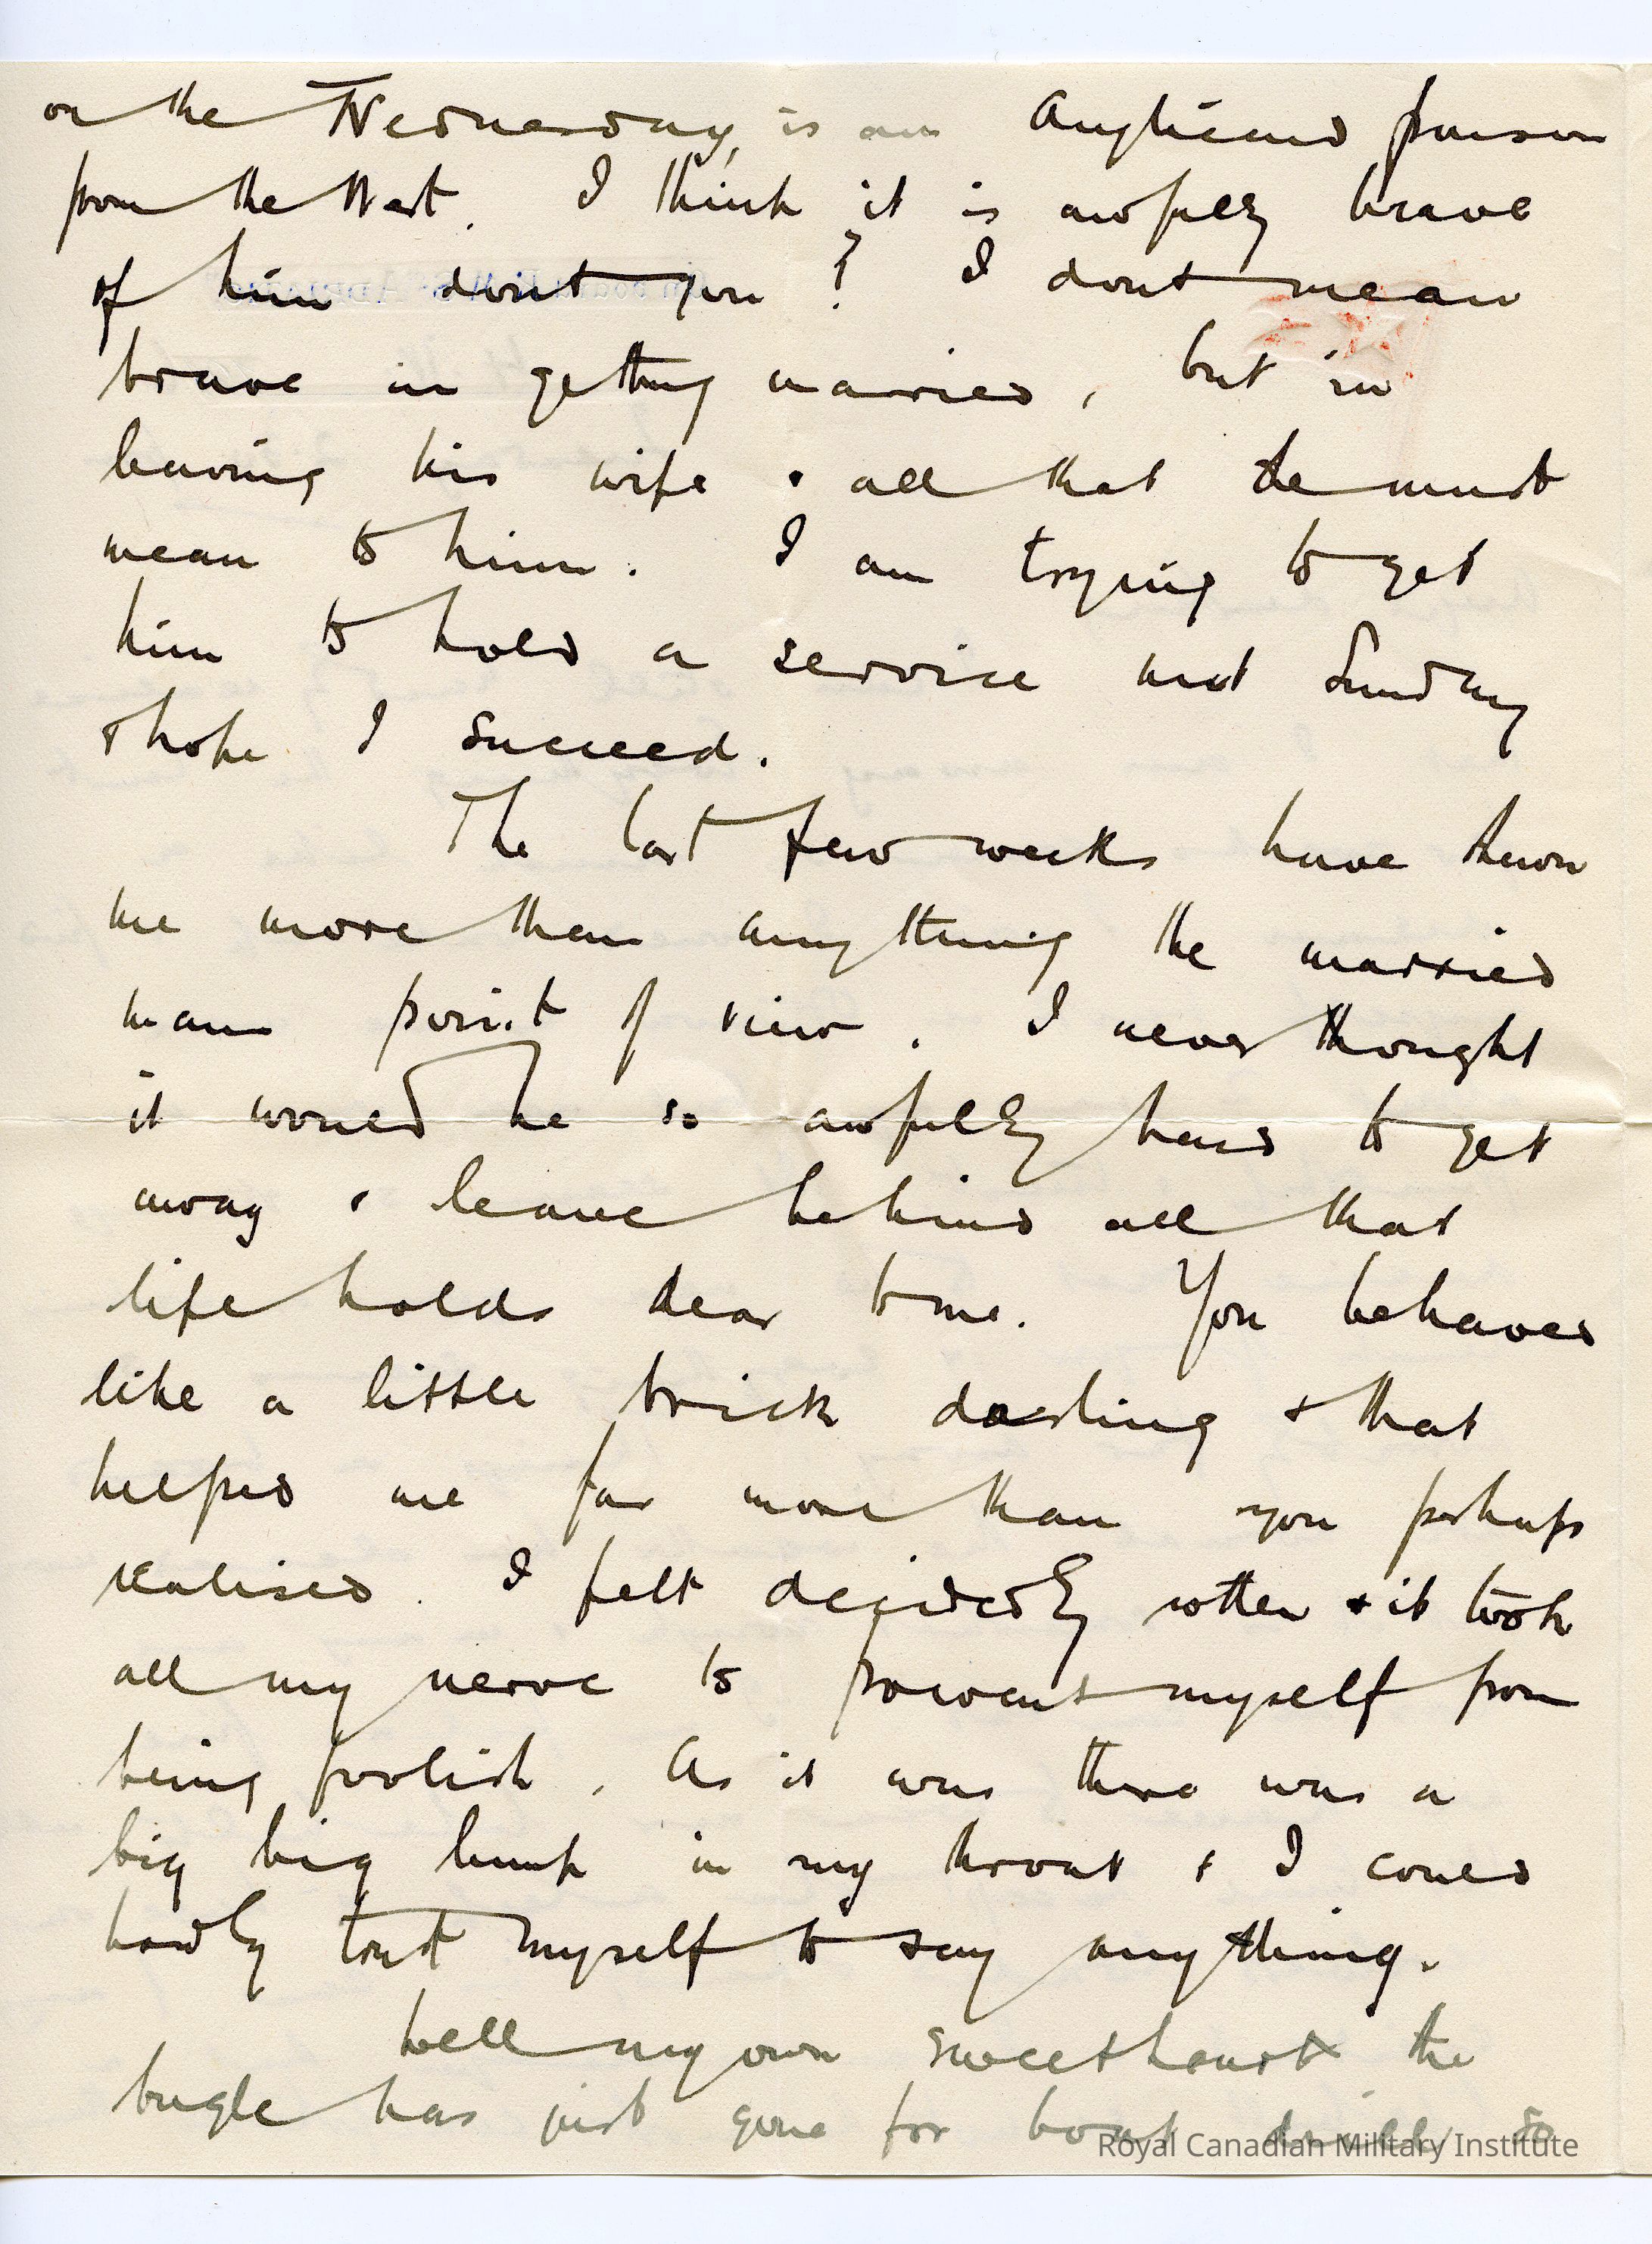 on the Wednesday, is an Anglican parson
from the West. I think it is awfully brave
of him dont you? I dont mean
brave in getting married, but in
leaving his wife & all that she must
mean to him. I am trying to get
him to hold a service next Sunday
& hope I succeed.
The last few weeks have shown
me more than anything the married
mans point of view. I never thought
it would be so awfully hard to get
away & leave behind all that
life holds dear to me. You behaved
like a little brick darling & that
helped me far more than you perhaps
realised. I felt decidedly rotten & it took
all my nerve to prevent myself from
being foolish. As it was there was a
big big lump in my throat & I could
hardly trust myself to say anything.
Well my own sweetheart the
bugle has just gone for boat drill so
Royal Canadian Military Institute